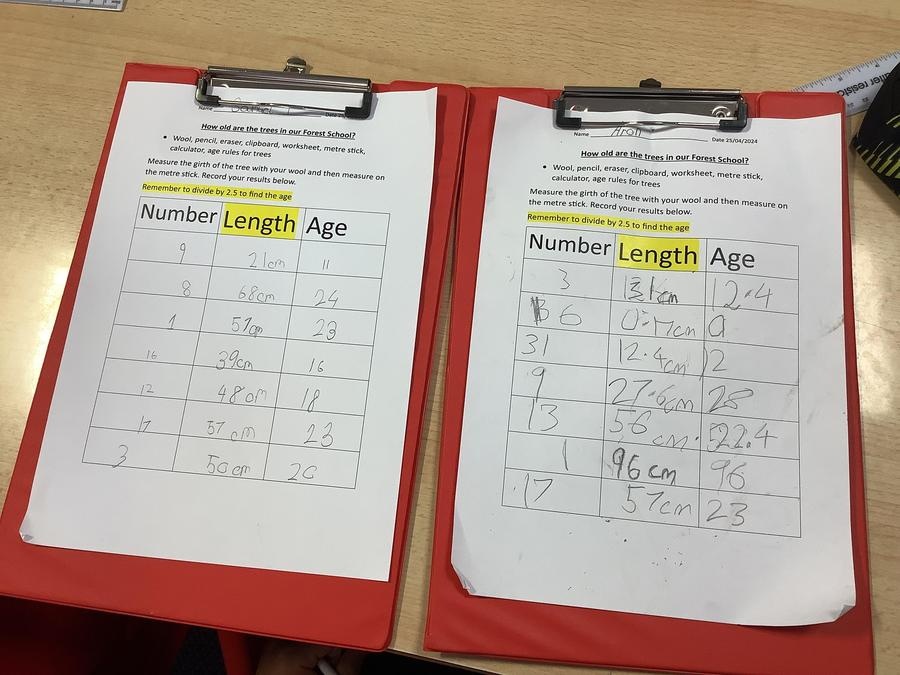 Name
How old are the trees in our Forest School?
• Wool, pencil, eraser, clipboard, worksheet, metre stick,
calculator, age rules for trees
Measure the girth of the tree with your wool and then measure on
the metre stick. Record your results below.
Remember to divide by 2.5 to find the age
Number Length Age
9 21cm 11
8 68cm 24
1 57cm 23
16 39cm 16
12 48cm 18
17 57cm 23
3 50cm 20
Name Aron Date 25/04/2024
How old are the trees in our Forest School?
• Wool, pencil, eraser, clipboard, worksheet, metre stick,
calculator, age rules for trees
Measure the girth of the tree with your wool and then measure on
the metre stick. Record your results below.
Remember to divide by 2.5 to find the age
Number Length Age
3 31cm 12.4
6
31 12.4cm 12
9 27.6cm 28
13 56cm 22.4
1 96cm 96
17 57cm 23